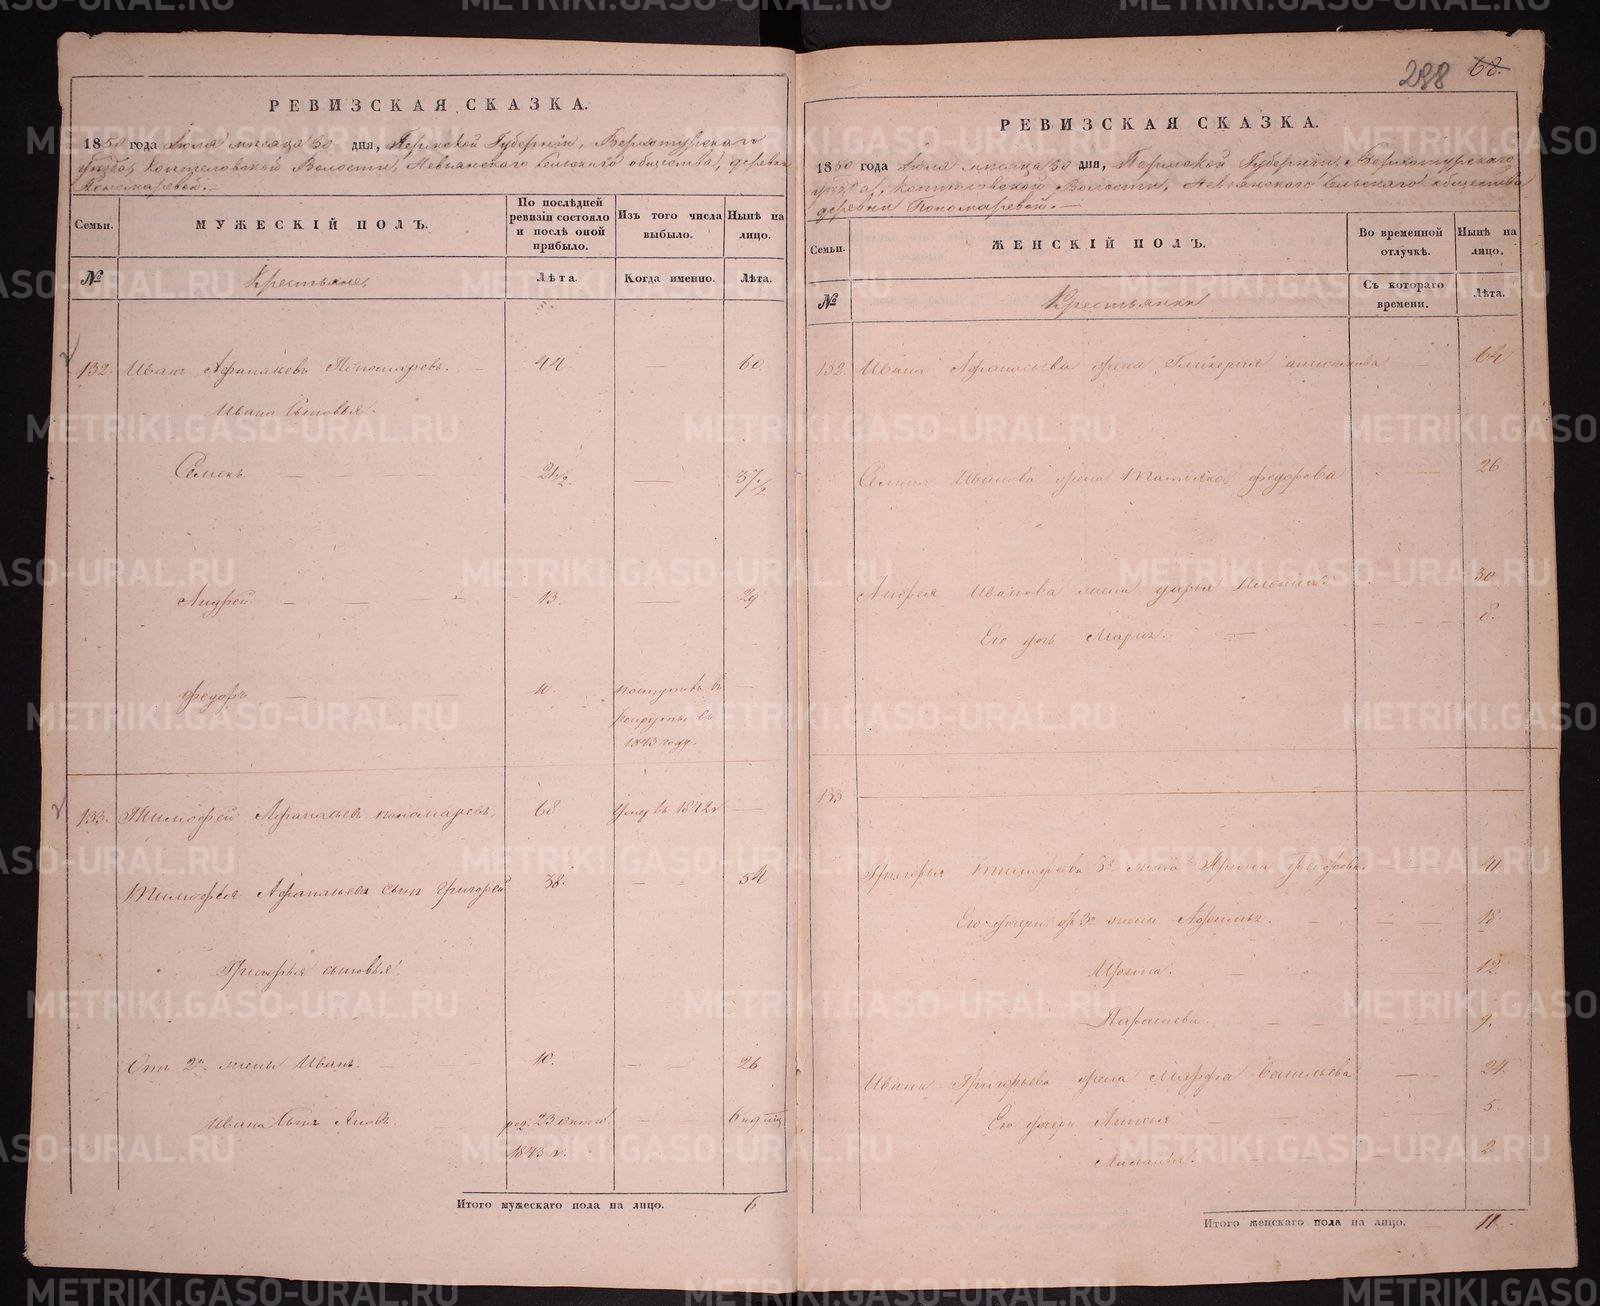 288 68.
РЕВИЗСКАЯ СКАЗКА.
1850 года Июля месяца 30 дня, Пермской Губернии, Верхотурскаго
уезда, Коптеловской Волости, Невьянскаго сельскаго общества, деревни
Пономаревой.
Семьи. МУЖЕСКІЙ ПОЛЪ. По послѣдней ревизіи состояло и послѣ оной прибыло. Изъ того числа выбыло. Нынѣ на лицо.
№ Крестьяне Лѣта. Когда именно. Лѣта.
132. Иванъ Афанасьевъ Пономаревъ. 44 — 60
Ивана Сыновья.
Семенъ 21 1/2. — 37 1/2
Андрей 13. — 29
Федоръ 10. поступилъ въ
рекруты въ
1843 году.
133. Тимофей Афанасьевъ Пономаревъ. 68 умер въ 1842 г —
Тимофея Афанасьева сынъ Григорей 38. — 54
Григорья сыновья.
Отъ 2й жены Иванъ. 10. — 26
Ивана Сынъ Яковъ. 23
1843 г.
Итого мужескаго пола на лицо. 6
РЕВИЗСКАЯ СКАЗКА.
1850 года Июля месяца 30 дня, Пермской Губернии, Верхотурскаго
уезда, Коптеловской Волости, Невьянскаго Сельскаго общества
деревни Пономаревой.
Семьи. ЖЕНСКІЙ ПОЛЪ. Во временной отлучкѣ. Нынѣ на лицо.
№ Крестьянки Съ котораго времени. Лѣта.
132. Ивана Афанасьева жена Гликерия — 64
Семена Иванова жена Татьяна Федорова — 26
Андрея Иванова жена Дарья — 30
Его дочь Марья. — 8.
133
Григорья Тимофеева 3я жена Ирина Федорова 41
Его дочери от 3й жены — 18.
12.
9.
Ивана Григорьева жена Марфа Васильева — 24.
Его дочери 5.
2
Итого женскаго пола на лицо. 11.
METRIKI.GASO-URAL.RU